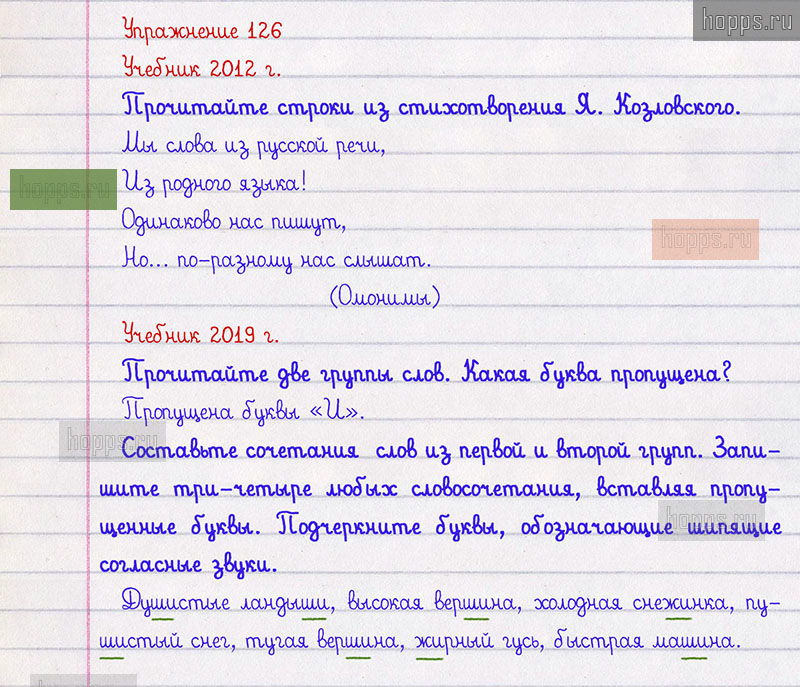 hopps.ru
Упражнение 126
Учебник 2012 г.
Прочитайте строки из стихотворения Я. Козловского.
Мы слова из русской речи,
hopps.ru
Из родного языка!
Одинаково нас пишут,
hopps.ru
Но... по-разному нас слышат.
(Омонимы)
Учебник 2019 г.
Прочитайте две группы слов. Какая буква пропущена?
Пропущена буквы «И».
hopps.ru
Составьте сочетания слов из первой и второй групп. Запи-
шите три-четыре любых словосочетания, вставляя пропу-
щенные буквы. Подчеркните буквы, обозначающие шипящие
hopps.ru
согласные звуки.
Душистые ландыши, высокая вершина, холодная снежинка, пу-
шистый снег, тугая вершина, жирный гусь, быстрая машина.